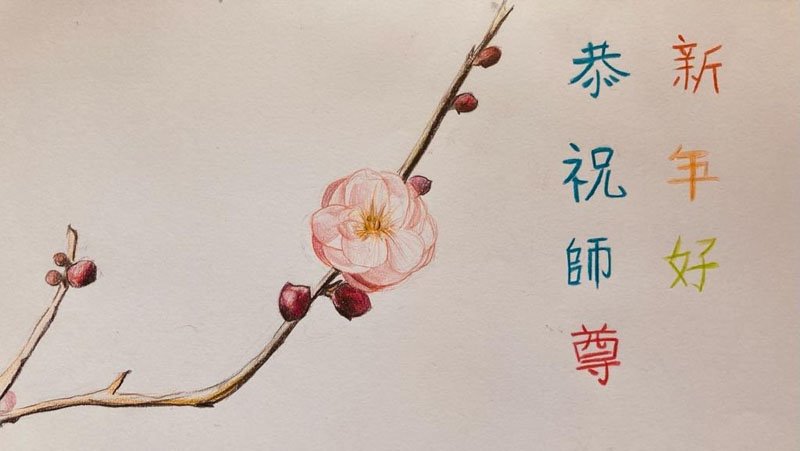 恭祝師尊
新年好